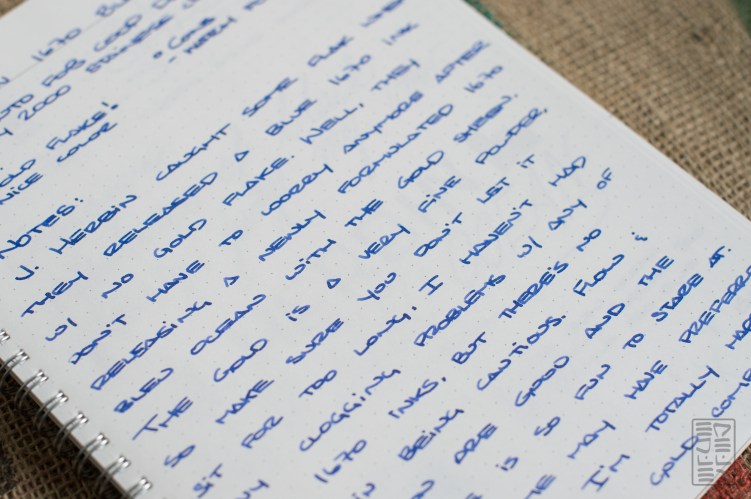 1670
FOR GOOD
2000 STAINLESS
• CONS
GOLD FLAKE!
NICE COLOR
NOTES:
J. HERBIN CAUGHT SOME FLAK WHEN
THEY RELEASED A BLUE 1670 INK
W/ NO GOLD FLAKE. WELL, THEY
DON'T HAVE TO WORRY ANYMORE AFTER
RELEASING A NEWLY FORMULATED 1670
BLEU OCEAN WITH THE GOLD SHEEN.
THE GOLD IS A VERY FINE POWDER,
SO MAKE SURE YOU DON'T LET IT
SIT FOR TOO LONG. I HAVEN'T HAD
CLOGGING PROBLEMS W/ ANY OF
1670 INKS, BUT THERE'S NO
BEING CAUTIOUS. FLOW &
ARE GOOD AND THE
IS SO FUN TO STARE AT.
MAY HAVE
I'M TOTALLY
GOLD